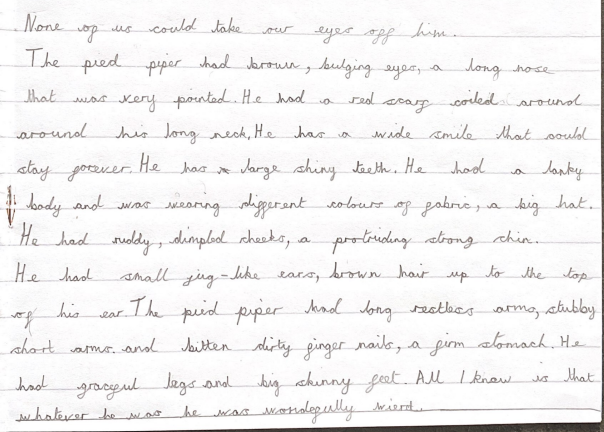 None of us could take our eyes off him.
The pied piper had brown, bulging eyes, a long nose
that was very pointed. He had a red scarf coiled around
around his long neck, He has a wide smile that could
stay forever. He has large shiny teeth. He had a lanky
body and was wearing different colours of fabric, a big hat.
He had ruddy, dimpled cheeks, a protruding strong chin.
He had small jug-like ears, brown hair up to the top
of his ear. The pied piper had long restless arms, stubby
short arms. and bitten dirty finger nails, a firm stomach. He
had graceful legs and big skinny feet. All I know is that
whatever he was he was wonderfully wierd.